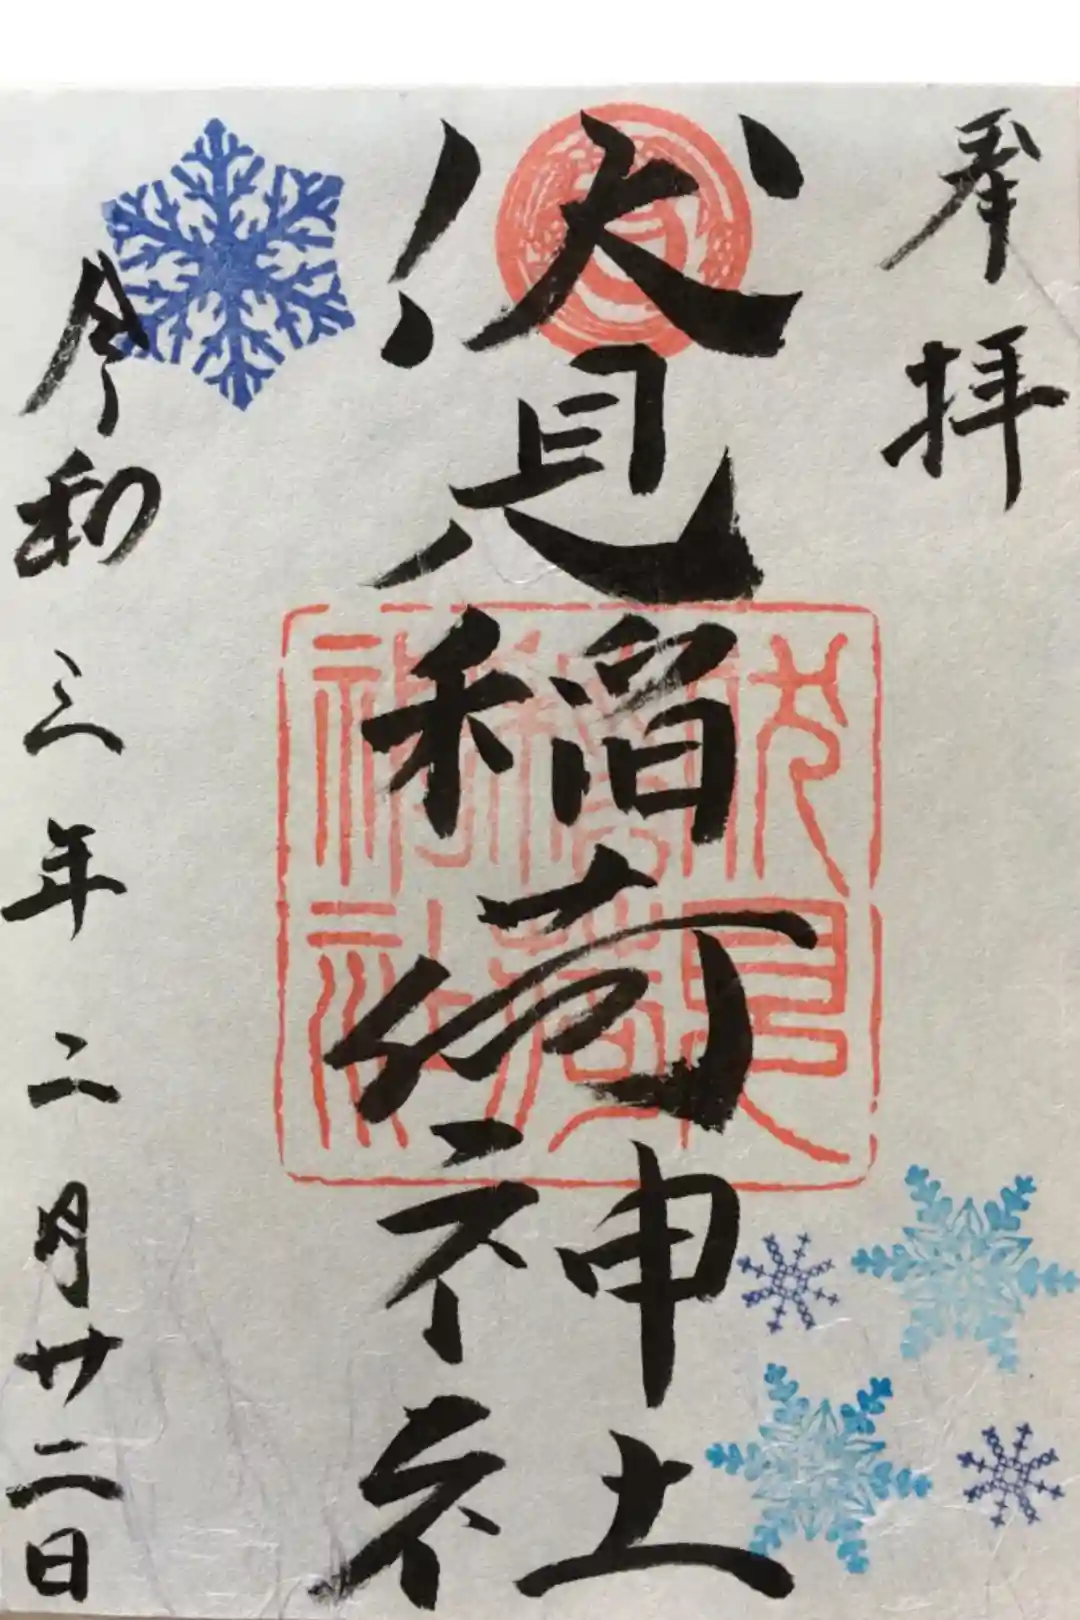 奉拝
伏見稲荷神社
伏見
稲荷
神社
令和三年二月廿二日